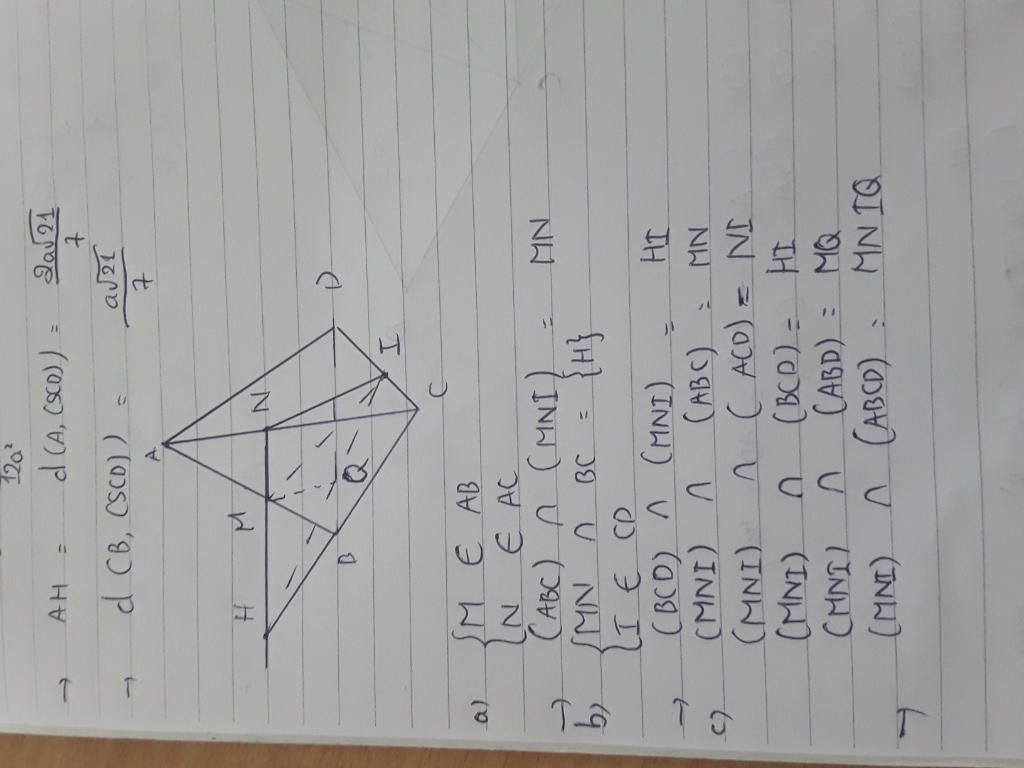 12a²
→ AH = d(A,(SCD)) = 2a√21/7
→ d(B,(SCD)) = a√21/7
A
H M N
B Q D
I
C
a) {M ∈ AB
{N ∈ AC
→ (ABC) ∩ (MNI) = MN
b) {MN ∩ BC = {H}
{I ∈ CD
→ (BCD) ∩ (MNI) = HI
c) (MNI) ∩ (ABC) = MN
(MNI) ∩ (ACD) = NI
(MNI) ∩ (BCD) = HI
(MNI) ∩ (ABD) = MQ
→ (MNI) ∩ (ABCD) = MNIQ